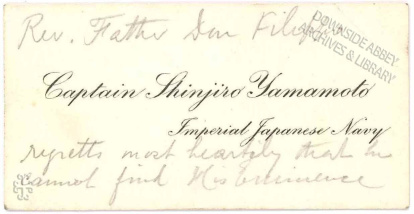 Rev. Father Don
DOWNSIDE ABBEY
ARCHIVES & LIBRARY
Captain Shinjiro Yamamoto
Imperial Japanese Navy
regretts most heartily that he
cannot find His Eminence